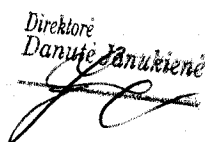 Direktorė
Danutė Janukienė